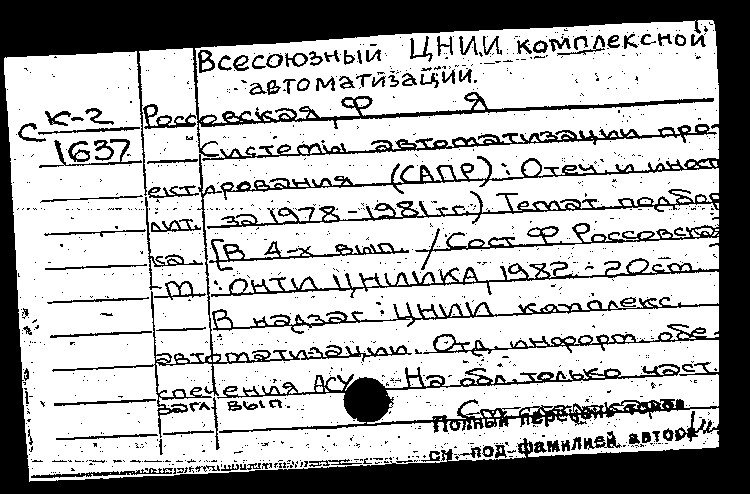 Всесоюзный ЦНИИ комплексной
автоматизации.
К-2 Россовская, Ф Я
С
1637 Системы автоматизации про-
ектирования (САПР): Отеч. и иност
лит. за 1978-1981 гг.) Темат. подбор
ка. [В 4-х вып. / Сост Ф. Россовска
-М : ОНТИ ЦНИИКА, 1982.-20см.
В надзаг: ЦНИИ комплекс.
автоматизации. Отд. информ. обе-
спечения АСУ. На обл. только част.
загл. вып.
См.
Полный перечень томов
см. под фамилией автора